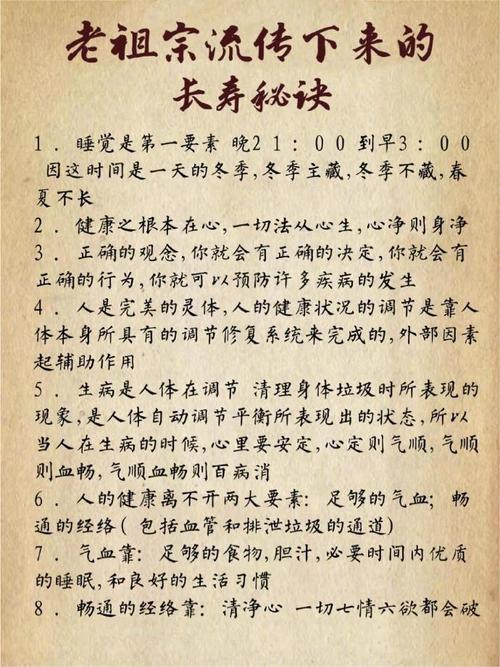 老祖宗流传下来的
长寿秘诀
1．睡觉是第一要素 晚21：00到早3：00
因这时间是一天的冬季,冬季主藏,冬季不藏,春
夏不长
2．健康之根本在心,一切法从心生,心净则身净
3．正确的观念,你就会有正确的决定,你就会有
正确的行为,你就可以预防许多疾病的发生
4．人是完美的灵体,人的健康状况的调节是靠人
体本身所具有的调节修复系统来完成的,外部因素
起辅助作用
5．生病是人体在调节 清理身体垃圾时所表现的
现象,是人体自动调节平衡所表现出的状态,所以
当人在生病的时候,心里要安定,心定则气顺,气顺
则血畅,气顺血畅则百病消
6．人的健康离不开两大要素：足够的气血；畅
通的经络(包括血管和排泄垃圾的通道)
7．气血靠：足够的食物,胆汁,必要时间内优质
的睡眠,和良好的生活习惯
8．畅通的经络靠：清净心 一切七情六欲都会破